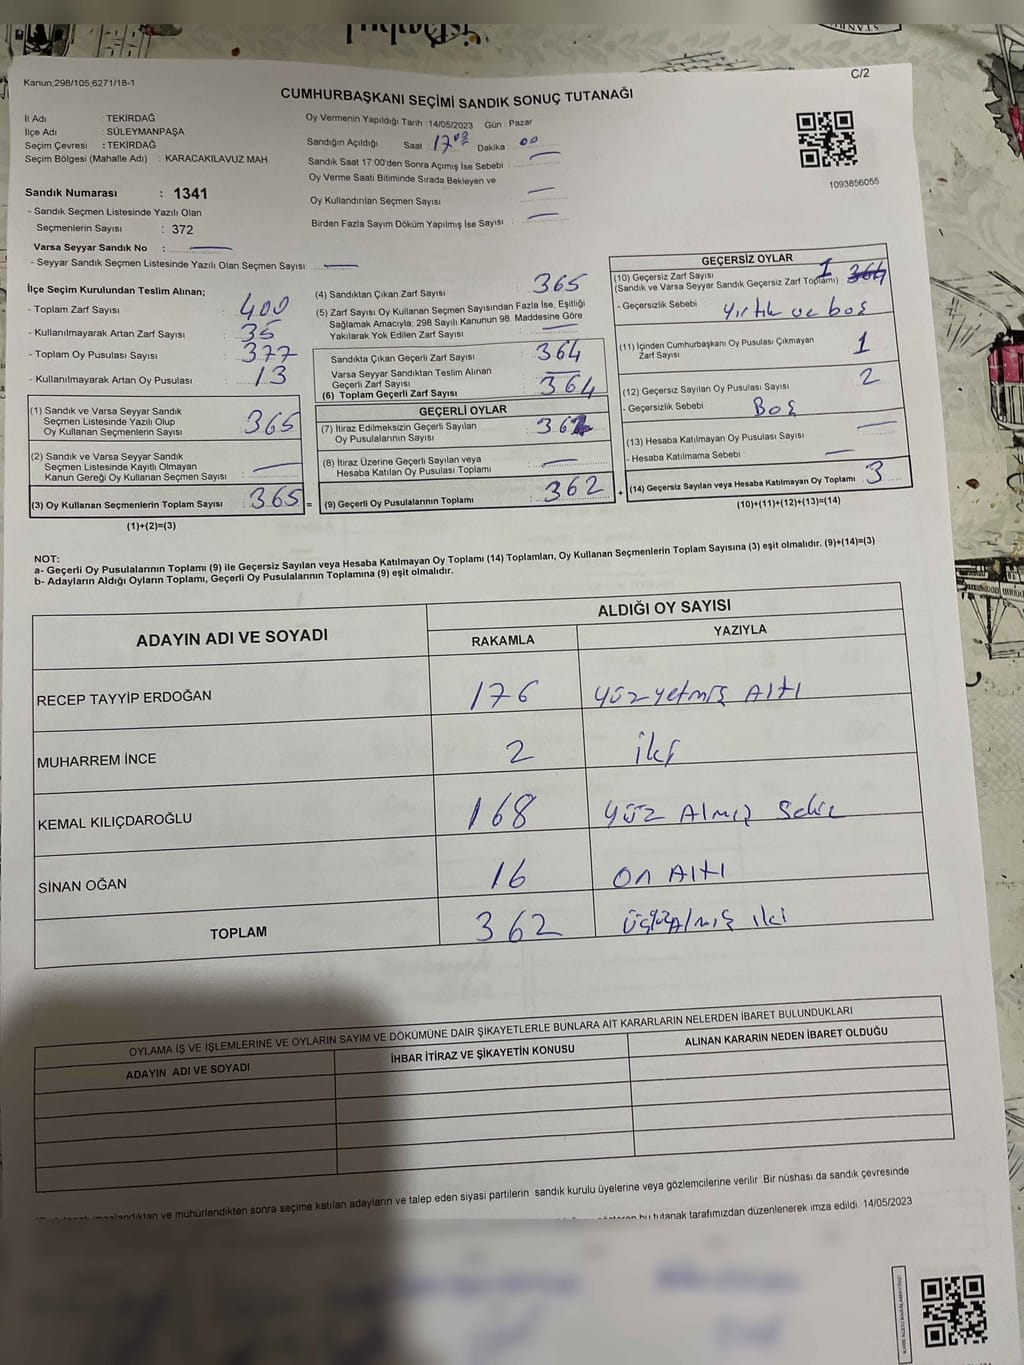 Kanun;298/105,6271/18-1
C/2
CUMHURBAŞKANI SEÇİMİ SANDIK SONUÇ TUTANAĞI
İl Adı : TEKİRDAĞ
İlçe Adı : SÜLEYMANPAŞA
Seçim Çevresi : TEKİRDAĞ
Seçim Bölgesi (Mahalle Adı) : KARACAKILAVUZ MAH
Oy Vermenin Yapıldığı Tarih : 14/05/2023 Gün : Pazar
Sandığın Açıldığı Saat 17:00 Dakika : 00
Sandık Saat 17:00'den Sonra Açımış İse Sebebi : —
Oy Verme Saati Bitiminde Sırada Bekleyen ve
Oy Kullandırılan Seçmen Sayısı : —
Birden Fazla Sayım Döküm Yapılmış İse Sayısı : —
1093856055
Sandık Numarası : 1341
- Sandık Seçmen Listesinde Yazılı Olan
Seçmenlerin Sayısı : 372
Varsa Seyyar Sandık No : —
- Seyyar Sandık Seçmen Listesinde Yazılı Olan Seçmen Sayısı: —
İlçe Seçim Kurulundan Teslim Alınan;
- Toplam Zarf Sayısı : 400
- Kullanılmayarak Artan Zarf Sayısı : 35
- Toplam Oy Pusulası Sayısı : 377
- Kullanılmayarak Artan Oy Pusulası : 13
(1) Sandık ve Varsa Seyyar Sandık
Seçmen Listesinde Yazılı Olup
Oy Kullanan Seçmenlerin Sayısı : 365
(2) Sandık ve Varsa Seyyar Sandık
Seçmen Listesinde Kayıtlı Olmayan
Kanun Gereği Oy Kullanan Seçmen Sayısı : —
(3) Oy Kullanan Seçmenlerin Toplam Sayısı : 365 =
(1)+(2)=(3)
(4) Sandıktan Çıkan Zarf Sayısı : 365
(5) Zarf Sayısı Oy Kullanan Seçmen Sayısından Fazla İse, Eşitliği
Sağlamak Amacıyla; 298 Sayılı Kanunun 98. Maddesine Göre
Yakılarak Yok Edilen Zarf Sayısı : —
Sandıkta Çıkan Geçerli Zarf Sayısı : 364
Varsa Seyyar Sandıktan Teslim Alınan
Geçerli Zarf Sayısı : —
(6) Toplam Geçerli Zarf Sayısı : 364
GEÇERLİ OYLAR
(7) İtiraz Edilmeksizin Geçerli Sayılan
Oy Pusulalarının Sayısı : 362
(8) İtiraz Üzerine Geçerli Sayılan veya
Hesaba Katılan Oy Pusulası Toplamı : —
(9) Geçerli Oy Pusulalarının Toplamı : 362 +
GEÇERSİZ OYLAR
(10) Geçersiz Zarf Sayısı 1 364
(Sandık ve Varsa Seyyar Sandık Geçersiz Zarf Toplamı)
- Geçersizlik Sebebi : Yırtık ve boş
(11) İçinden Cumhurbaşkanı Oy Pusulası Çıkmayan
Zarf Sayısı 1
(12) Geçersiz Sayılan Oy Pusulası Sayısı : 2
- Geçersizlik Sebebi : Boş
(13) Hesaba Katılmayan Oy Pusulası Sayısı : —
- Hesaba Katılmama Sebebi : —
(14) Geçersiz Sayılan veya Hesaba Katılmayan Oy Toplamı : 3
(10)+(11)+(12)+(13)=(14)
NOT:
a- Geçerli Oy Pusulalarının Toplamı (9) ile Geçersiz Sayılan veya Hesaba Katılmayan Oy Toplamı (14) Toplamları, Oy Kullanan Seçmenlerin Toplam Sayısına (3) eşit olmalıdır. (9)+(14)=(3)
b- Adayların Aldığı Oyların Toplamı, Geçerli Oy Pusulalarının Toplamına (9) eşit olmalıdır.
ADAYIN ADI VE SOYADI
ALDIĞI OY SAYISI
RAKAMLA YAZIYLA
RECEP TAYYİP ERDOĞAN 176 Yüzyetmiş Altı
MUHARREM İNCE 2 iki
KEMAL KILIÇDAROĞLU 168 Yüz Almış Sekiz
SİNAN OĞAN 16 On Altı
TOPLAM 362 ÜçyüzAlmış iki
OYLAMA İŞ VE İŞLEMLERİNE VE OYLARIN SAYIM VE DÖKÜMÜNE DAİR ŞİKAYETLERLE BUNLARA AİT KARARLARIN NELERDEN İBARET BULUNDUKLARI
ADAYIN ADI VE SOYADI İHBAR İTİRAZ VE ŞİKAYETİN KONUSU ALINAN KARARIN NEDEN İBARET OLDUĞU
imzalandıktan ve mühürlendikten sonra seçime katılan adayların ve talep eden siyasi partilerin sandık kurulu üyelerine veya gözlemcilerine verilir Bir nüshası da sandık çevresinde
bu tutanak tarafımızdan düzenlenerek imza edildi. 14/05/2023